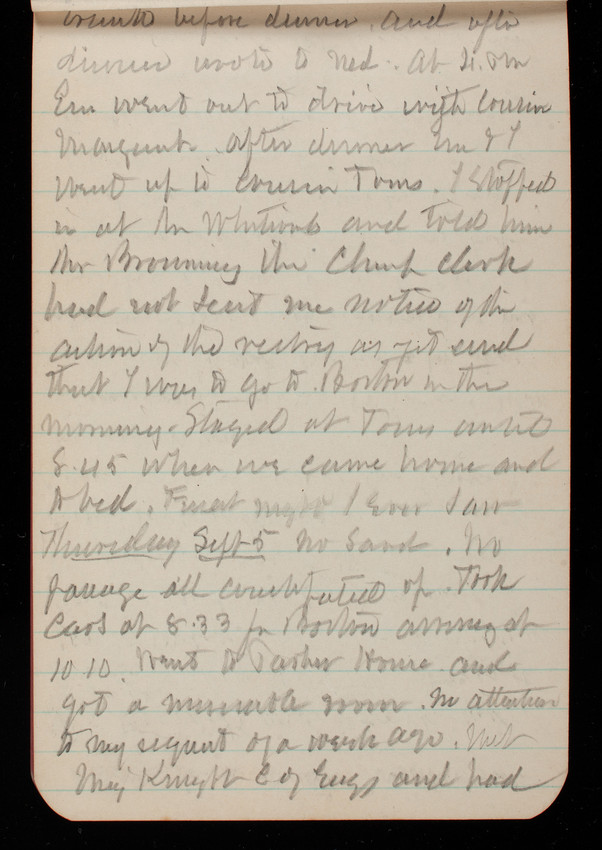 before dinner. and after
dinner wrote to Ned. At 4. pm
Em went out to drive with Cousin
Margaret. after dinner Em & I
went up to Cousin Toms. I stopped
in at Mr Whitings and told him
Mr Browning the Church clerk
had not sent me notice of the
action of the vestry as yet and
that I was to go to Boston in the
morning. Stayed at Toms until
8.45 when we came home and
to bed. night I ever saw
Thursday Sept 5 No Sand. No
passage all constipated up. Took
Cars at 8.33 for Boston arriving at
10 10. Went to Parker House and
got a miserable room. No attention
to my request of a week ago. Met
Maj Knight C of Engs and had